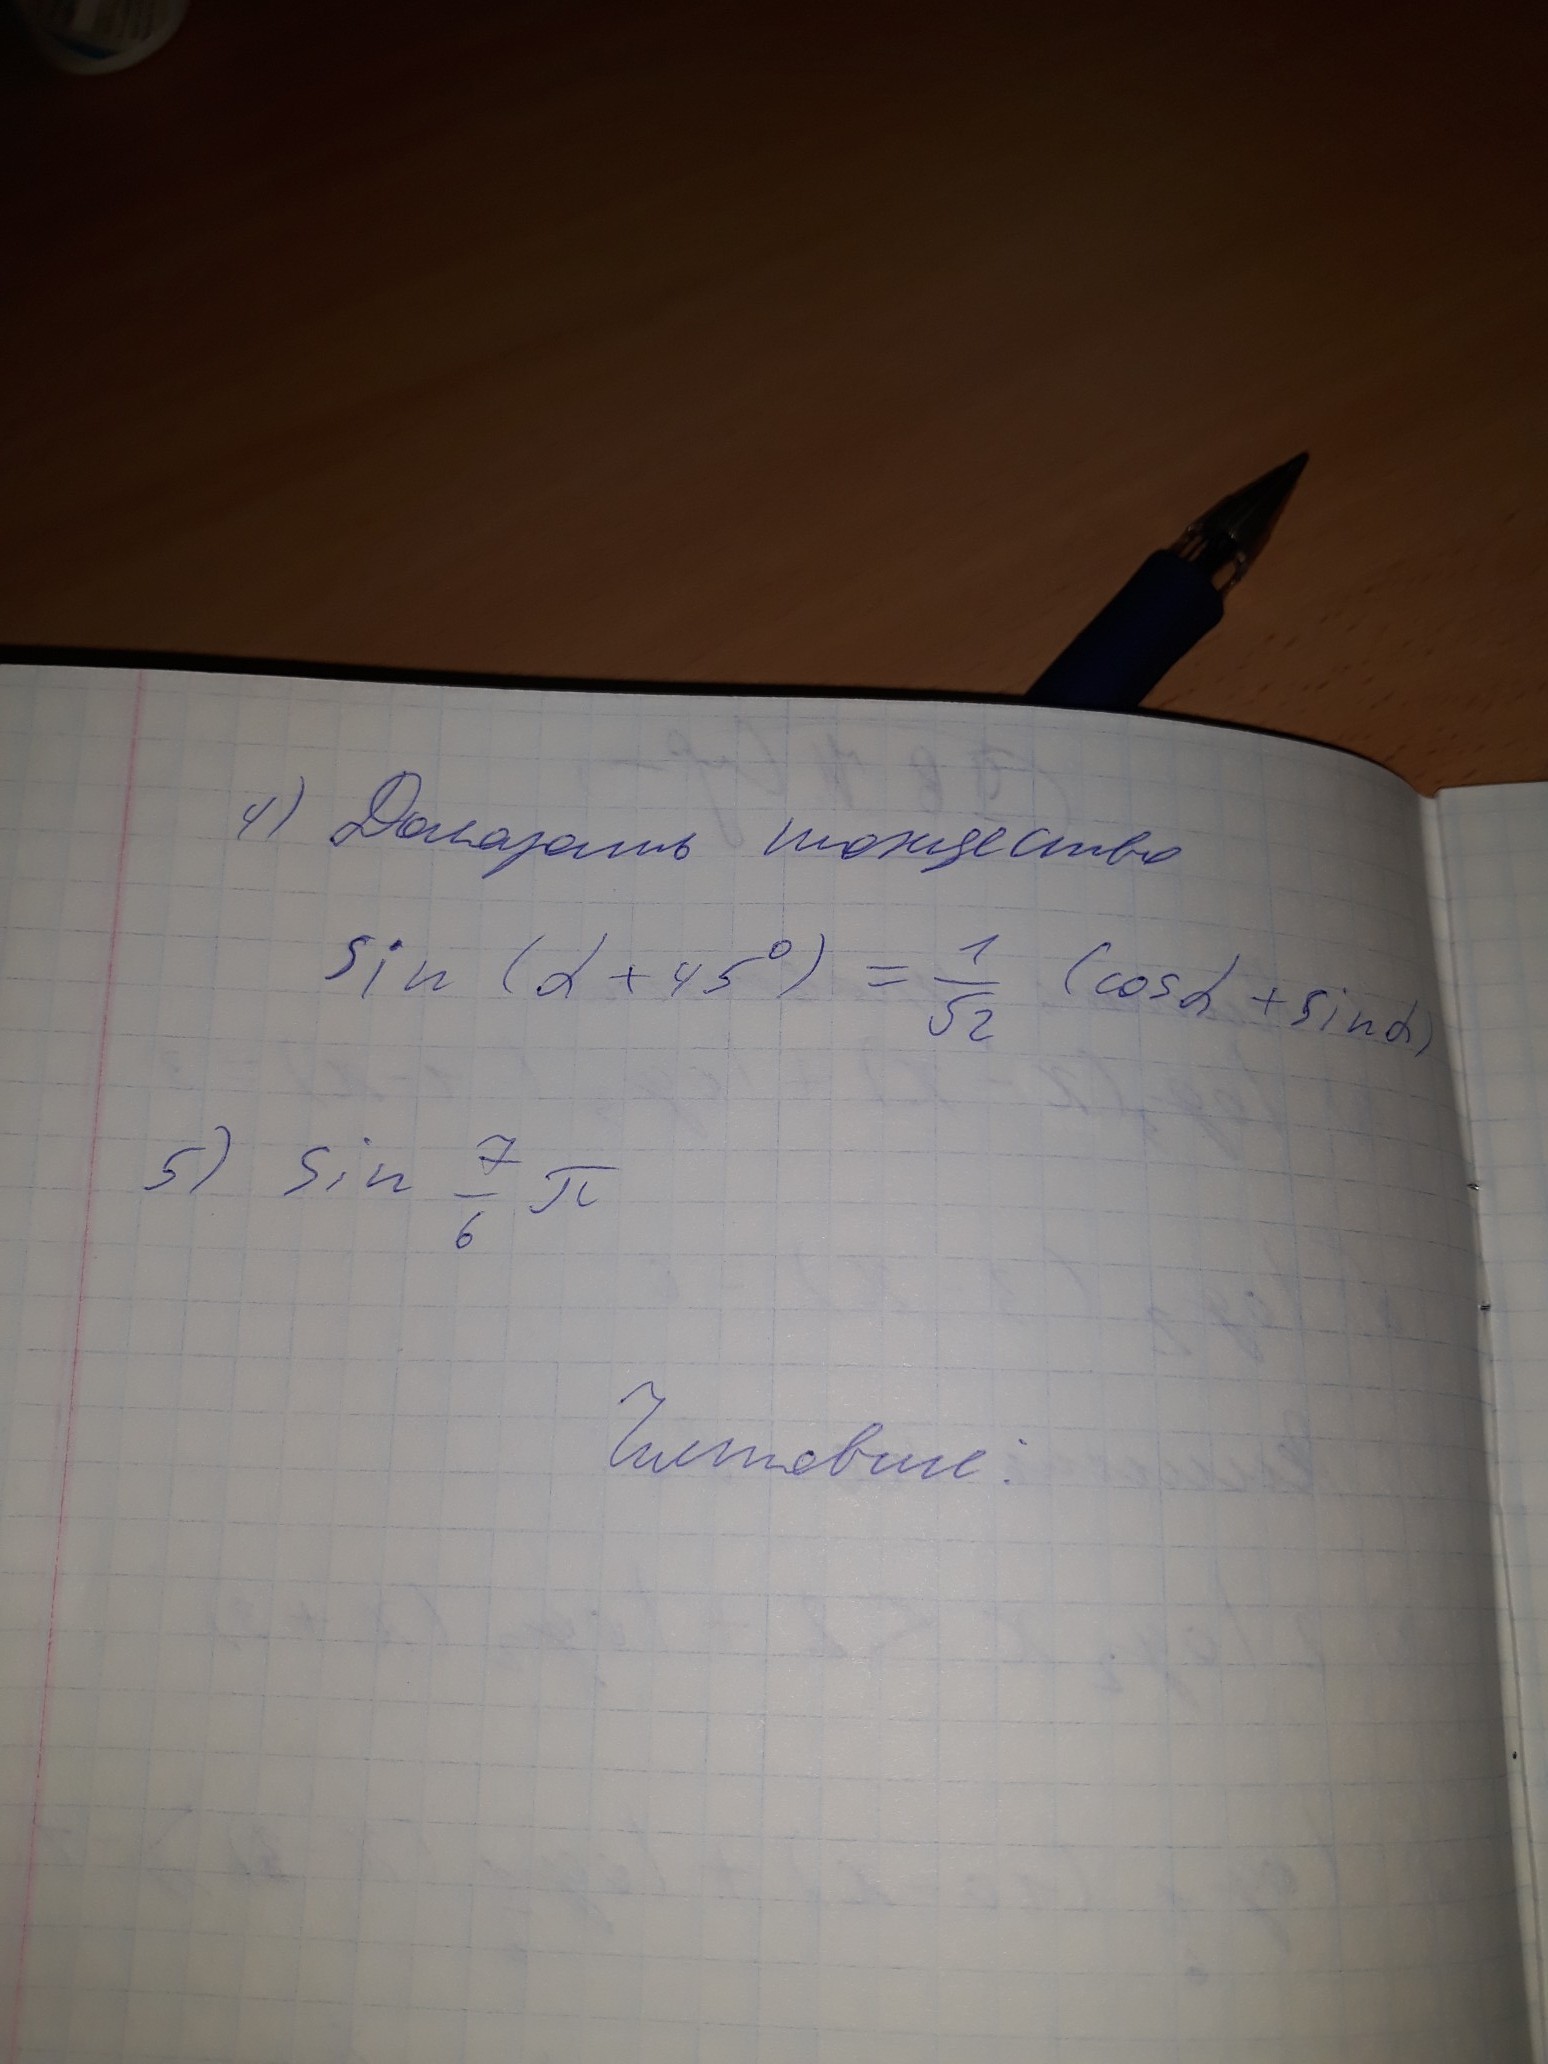 4) Доказать тождество
sin (α + 45°) = 1/√2 (cosα + sinα)
5) sin 7/6 π